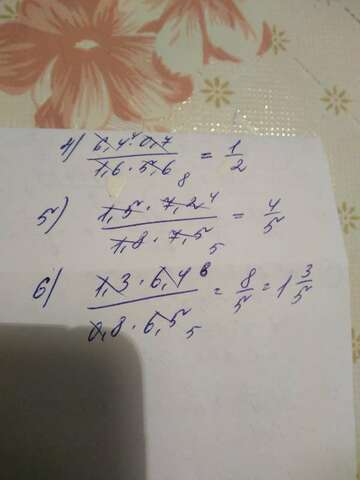 4) 6,4 ⁴ · 0,7 / 1,6 · 5,6 8 = 1/2
5) 1,5 · 7,2 ⁴ / 1,8 · 7,5 5 = 4/5
6) 1,3 · 6,4 8 / 0,8 · 6,5 5 = 8/5 = 1 3/5